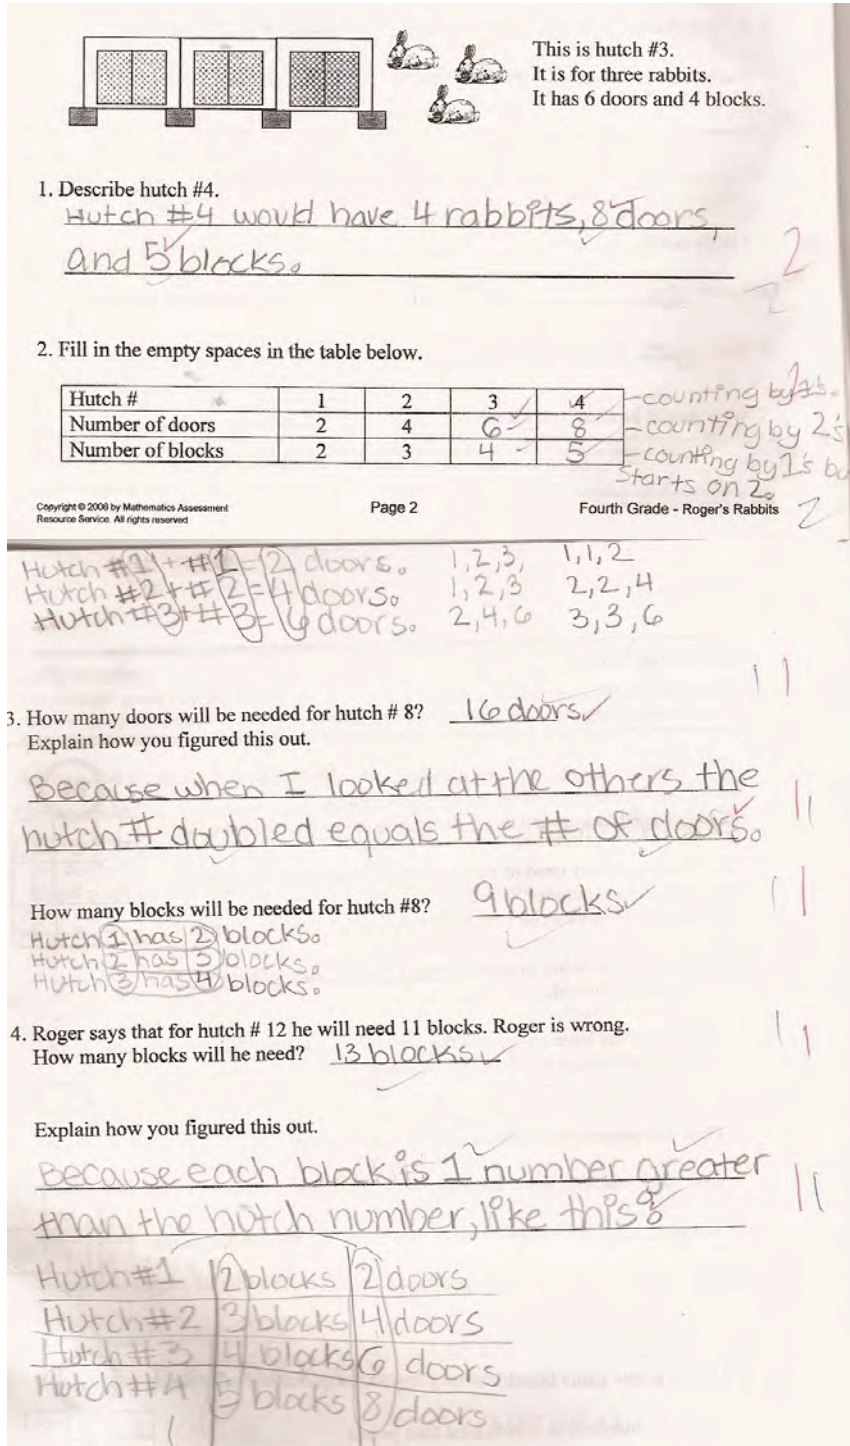 This is hutch #3.
It is for three rabbits.
It has 6 doors and 4 blocks.
1. Describe hutch #4.
Hutch #4 would have 4 rabbits, 8 doors,
and 5 blocks.
2
2. Fill in the empty spaces in the table below.
Hutch # 1 2 3 4 -counting by 1's.
Number of doors 2 4 6 8 -counting by 2's
Number of blocks 2 3 4 5 -counting by 1's bu
Starts on 2.
2
Copyright © 2008 by Mathematics Assessment
Resource Service. All rights reserved
Page 2
Fourth Grade - Roger's Rabbits
Hutch #1+#1=2 doors. 1,2,3, 1,1,2
Hutch #2+#2=4 doors. 1,2,3 2,2,4
Hutch #3+#3=6 doors. 2,4,6 3,3,6
1 1
3. How many doors will be needed for hutch # 8? 16 doors
Explain how you figured this out.
Because when I looked at the others the
hutch # doubled equals the # of doors.
1 1
How many blocks will be needed for hutch #8? 9 blocks
1 1
Hutch 1 has 2 blocks.
Hutch 2 has 3 blocks.
Hutch 3 has 4 blocks.
4. Roger says that for hutch # 12 he will need 11 blocks. Roger is wrong.
How many blocks will he need? 13 blocks
1 1
Explain how you figured this out.
Because each block is 1 number greater
than the hutch number, like this:
1 1
Hutch #1 2 blocks 2 doors
Hutch #2 3 blocks 4 doors
Hutch #3 4 blocks 6 doors
Hutch #4 5 blocks 8 doors